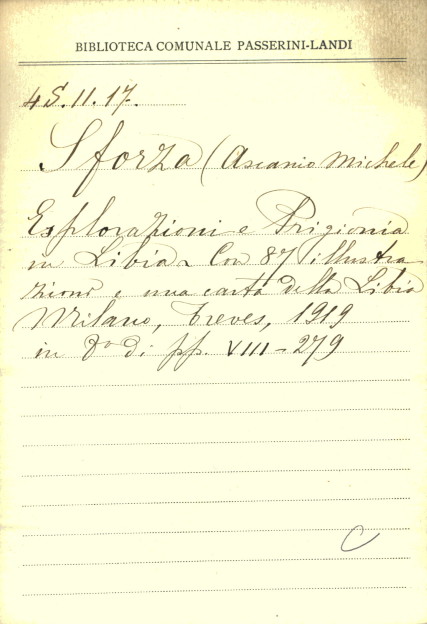 BIBLIOTECA COMUNALE PASSERINI-LANDI
4S.11.17.
Sforza (Ascanio Michele)
Esplorazioni e Prigionia
in Libia - Con 87 illustra
zioni e una carta della Libia
Milano, Treves, 1919
in 8º di pp. VIII-279
C